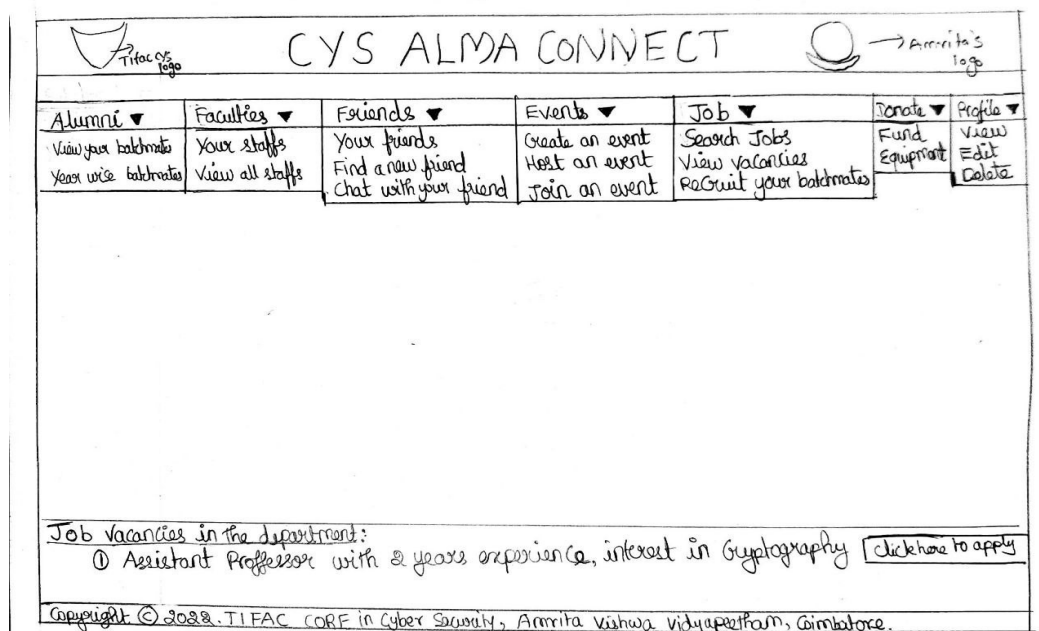 CYS ALMA CONNECT
Tifac cys
logo
Amrita's
logo
Alumni ▼
View your batchmates
Year wise batchmates
Faculties ▼
Your staffs
View all staffs
Friends ▼
Your friends
Find a new friend
Chat with your friend
Events ▼
Create an event
Host an event
Join an event
Job ▼
Search Jobs
View vacancies
Recruit your batchmates
Donate ▼
Fund
Equipment
Profile ▼
View
Edit
Delete
Job vacancies in the department:
① Assistant Proffessor with 2 years experience, interest in Cryptography
click here to apply
Copyright © 2022. TIFAC CORE in Cyber Security, Amrita Vishwa Vidyapeetham, Coimbatore.